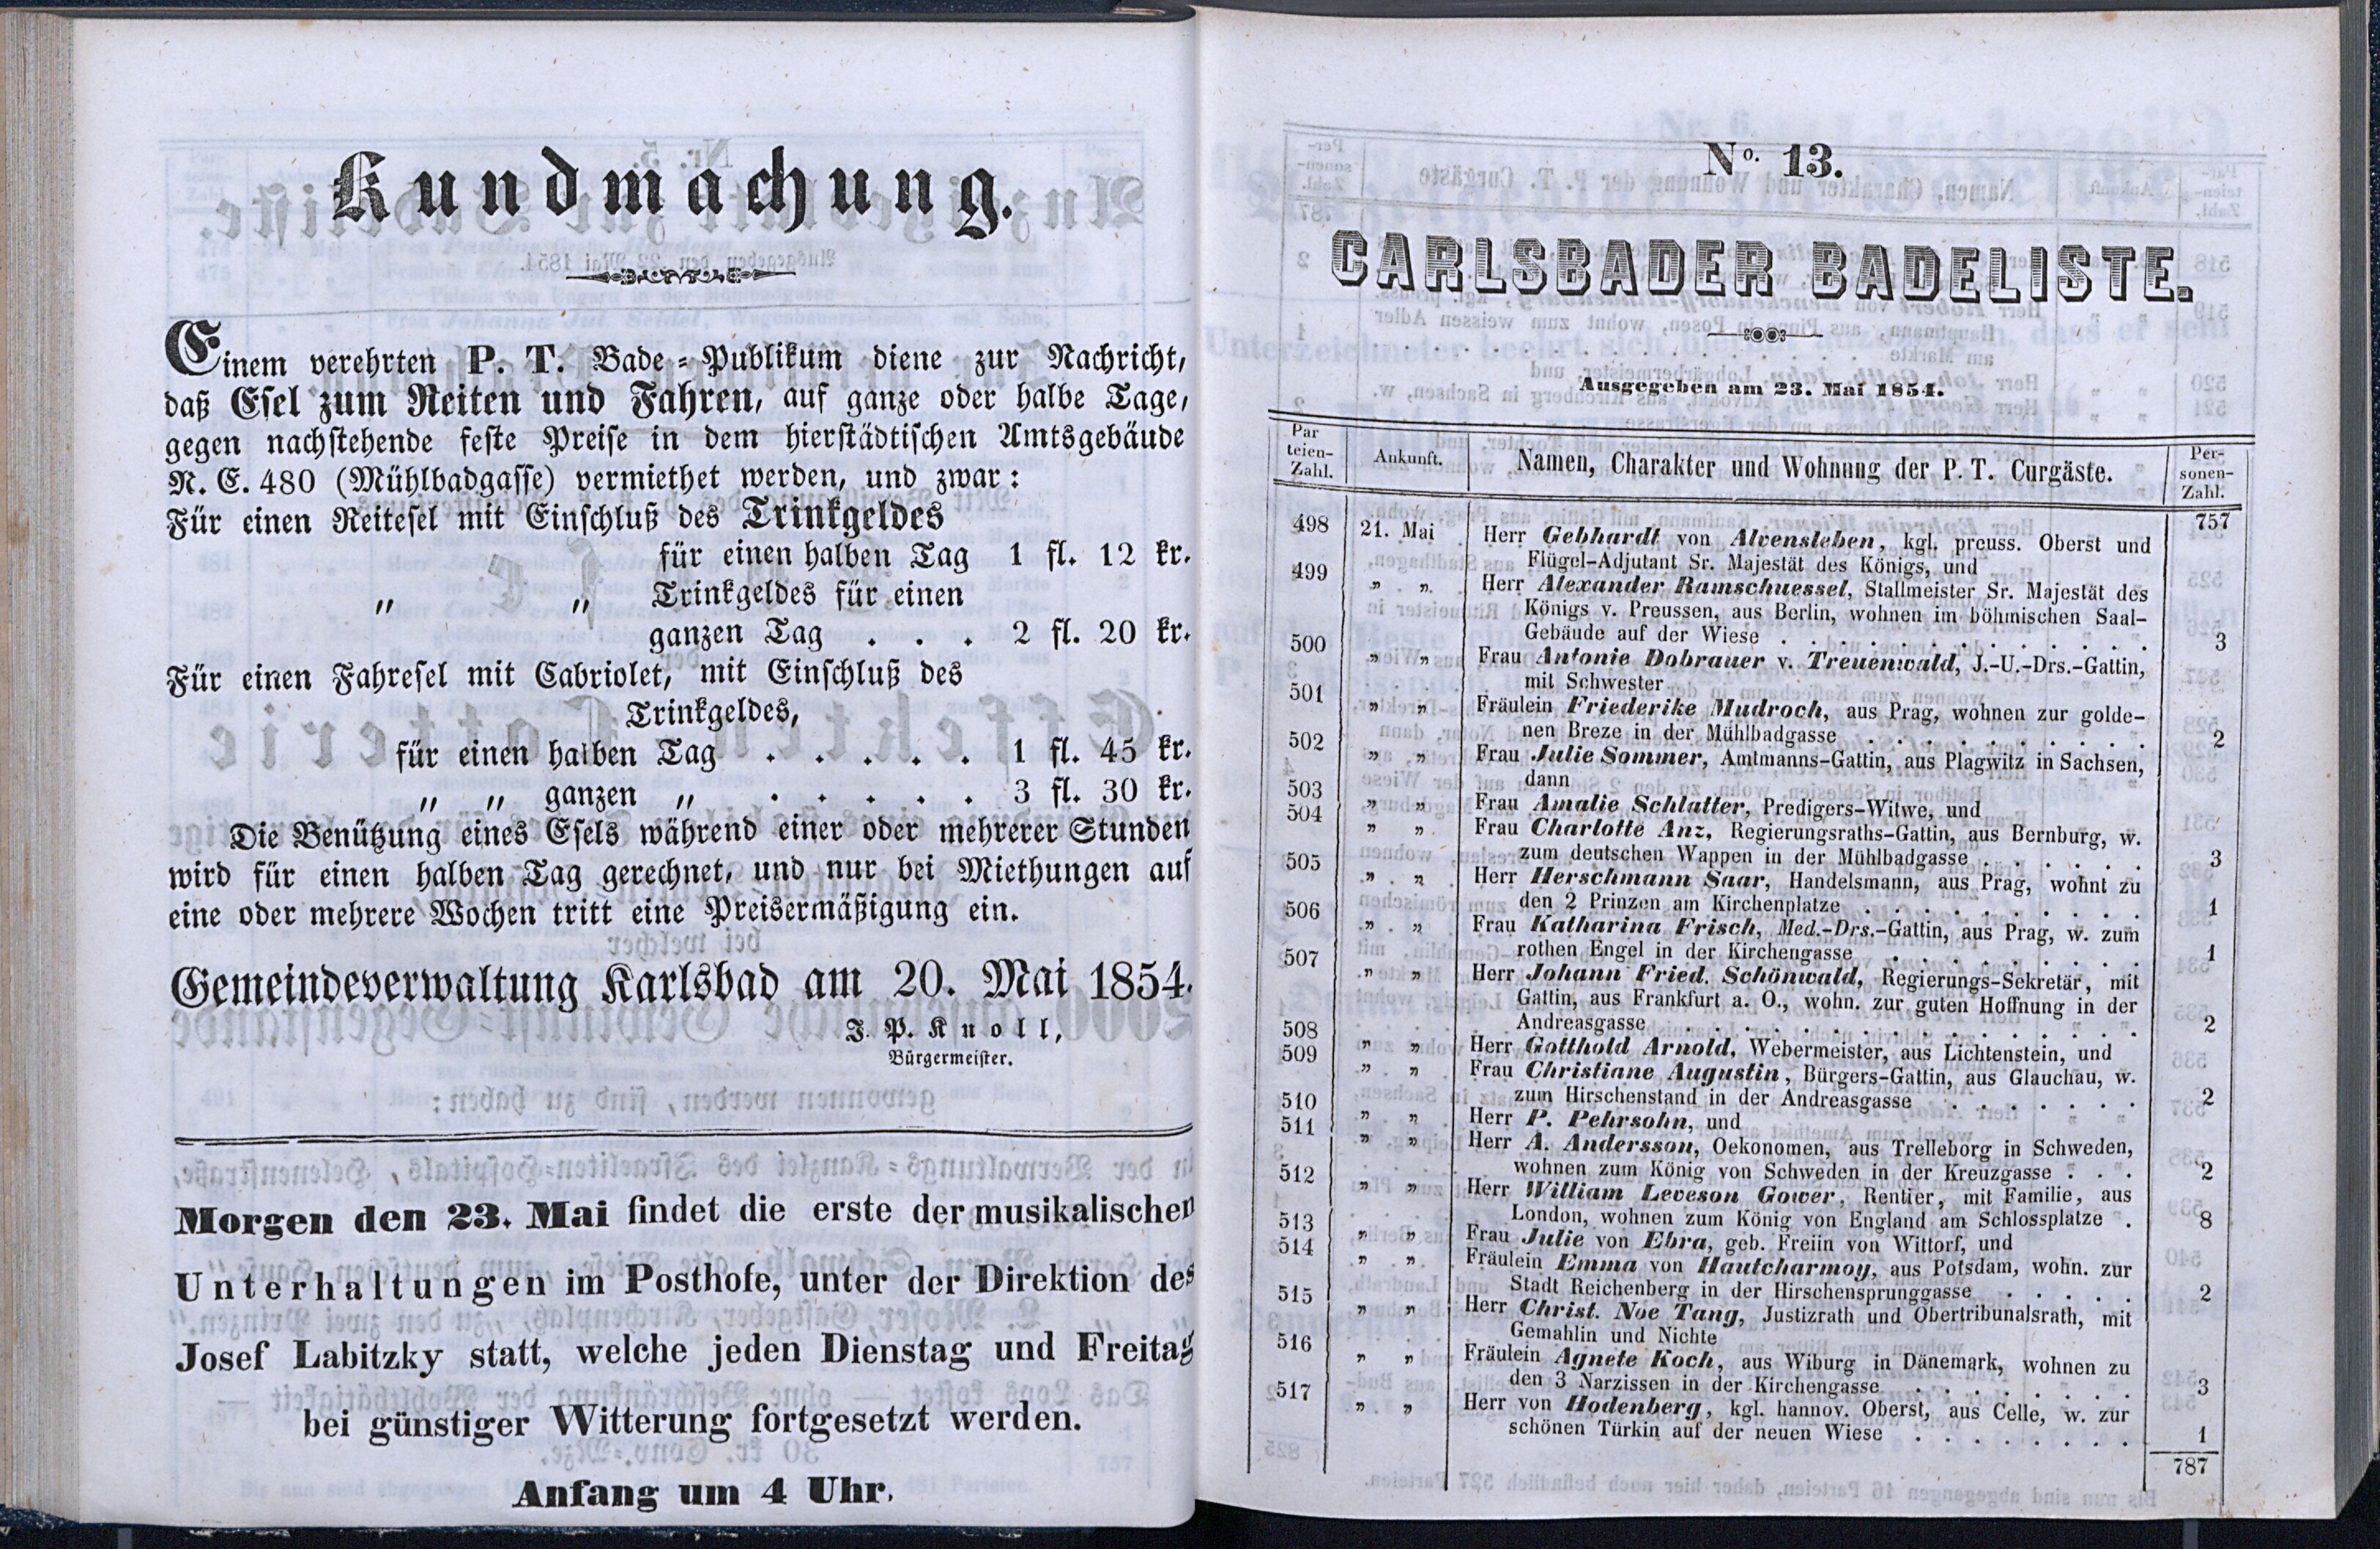 Kundmachung.
Einem verehrten P. T. Bade-Publikum diene zur Nachricht,
daß Esel zum Reiten und Fahren, auf ganze oder halbe Tage,
gegen nachstehende feste Preise in dem hierstädtischen Amtsgebäude
N. E. 480 (Mühlbadgasse) vermiethet werden, und zwar:
Für einen Reitesel mit Einschluß des Trinkgeldes
für einen halben Tag 1 fl. 12 kr.
„ „ Trinkgeldes für einen
ganzen Tag . . . 2 fl. 20 kr.
Für einen Fahresel mit Cabriolet, mit Einschluß des
Trinkgeldes,
für einen halben Tag . . . . . 1 fl. 45 kr.
„ „ ganzen „ . . . . . 3 fl. 30 kr.
Die Benützung eines Esels während einer oder mehrerer Stunden
wird für einen halben Tag gerechnet, und nur bei Miethungen auf
eine oder mehrere Wochen tritt eine Preisermäßigung ein.
Gemeindeverwaltung Karlsbad am 20. Mai 1854.
J. P. Knoll,
Bürgermeister.
Morgen den 23. Mai findet die erste der musikalischen
Unterhaltungen im Posthofe, unter der Direktion des
Josef Labitzky statt, welche jeden Dienstag und Freitag
bei günstiger Witterung fortgesetzt werden.
Anfang um 4 Uhr.
No. 13.
CARLSBADER BADELISTE.
Ausgegeben am 23. Mai 1854.
Par
teien-
Zahl.
Ankunft.
Namen, Charakter und Wohnung der P. T. Curgäste.
Per-
sonen-
Zahl.
757
498 21. Mai Herr Gebhardt von Alvensleben, kgl. preuss. Oberst und
Flügel-Adjutant Sr. Majestät des Königs, und
499 „ „ Herr Alexander Ramschuessel, Stallmeister Sr. Majestät des
Königs v. Preussen, aus Berlin, wohnen im böhmischen Saal-
Gebäude auf der Wiese . . . 3
500 „ „ Frau Antonie Dobrauer v. Treuenwald, J.-U.-Drs.-Gattin,
mit Schwester
501 „ „ Fräulein Friederike Mudroch, aus Prag, wohnen zur golde-
nen Breze in der Mühlbadgasse . . . 2
502 „ „ Frau Julie Sommer, Amtmanns-Gattin, aus Plagwitz in Sachsen,
dann
503 „ „ Frau Amalie Schlatter, Predigers-Witwe, und
504 „ „ Frau Charlotte Anz, Regierungsraths-Gattin, aus Bernburg, w.
zum deutschen Wappen in der Mühlbadgasse . . . 3
505 „ „ Herr Herschmann Saar, Handelsmann, aus Prag, wohnt zu
den 2 Prinzen am Kirchenplatze . . . 1
506 „ „ Frau Katharina Frisch, Med.-Drs.-Gattin, aus Prag, w. zum
rothen Engel in der Kirchengasse . . . 1
507 „ „ Herr Johann Fried. Schönwald, Regierungs-Sekretär, mit
Gattin, aus Frankfurt a. O., wohn. zur guten Hoffnung in der
Andreasgasse . . . 2
508 „ „ Herr Gotthold Arnold, Webermeister, aus Lichtenstein, und
509 „ „ Frau Christiane Augustin, Bürgers-Gattin, aus Glauchau, w.
zum Hirschenstand in der Andreasgasse . . . 2
510 „ „ Herr P. Pehrsohn, und
511 „ „ Herr A. Andersson, Oekonomen, aus Trelleborg in Schweden,
wohnen zum König von Schweden in der Kreuzgasse . . . 2
512 „ „ Herr William Leveson Gower, Rentier, mit Familie, aus
London, wohnen zum König von England am Schlossplatze . 8
513 „ „ Frau Julie von Ebra, geb. Freiin von Wittorf, und
514 „ „ Fräulein Emma von Hautcharmoy, aus Potsdam, wohn. zur
Stadt Reichenberg in der Hirschensprunggasse . . . 2
515 „ „ Herr Christ. Noe Tang, Justizrath und Obertribunalsrath, mit
Gemahlin und Nichte
516 „ „ Fräulein Agnete Koch, aus Wiburg in Dänemark, wohnen zu
den 3 Narzissen in der Kirchengasse . . . 3
517 „ „ Herr von Hodenberg, kgl. hannov. Oberst, aus Celle, w. zur
schönen Türkin auf der neuen Wiese . . . 1
787